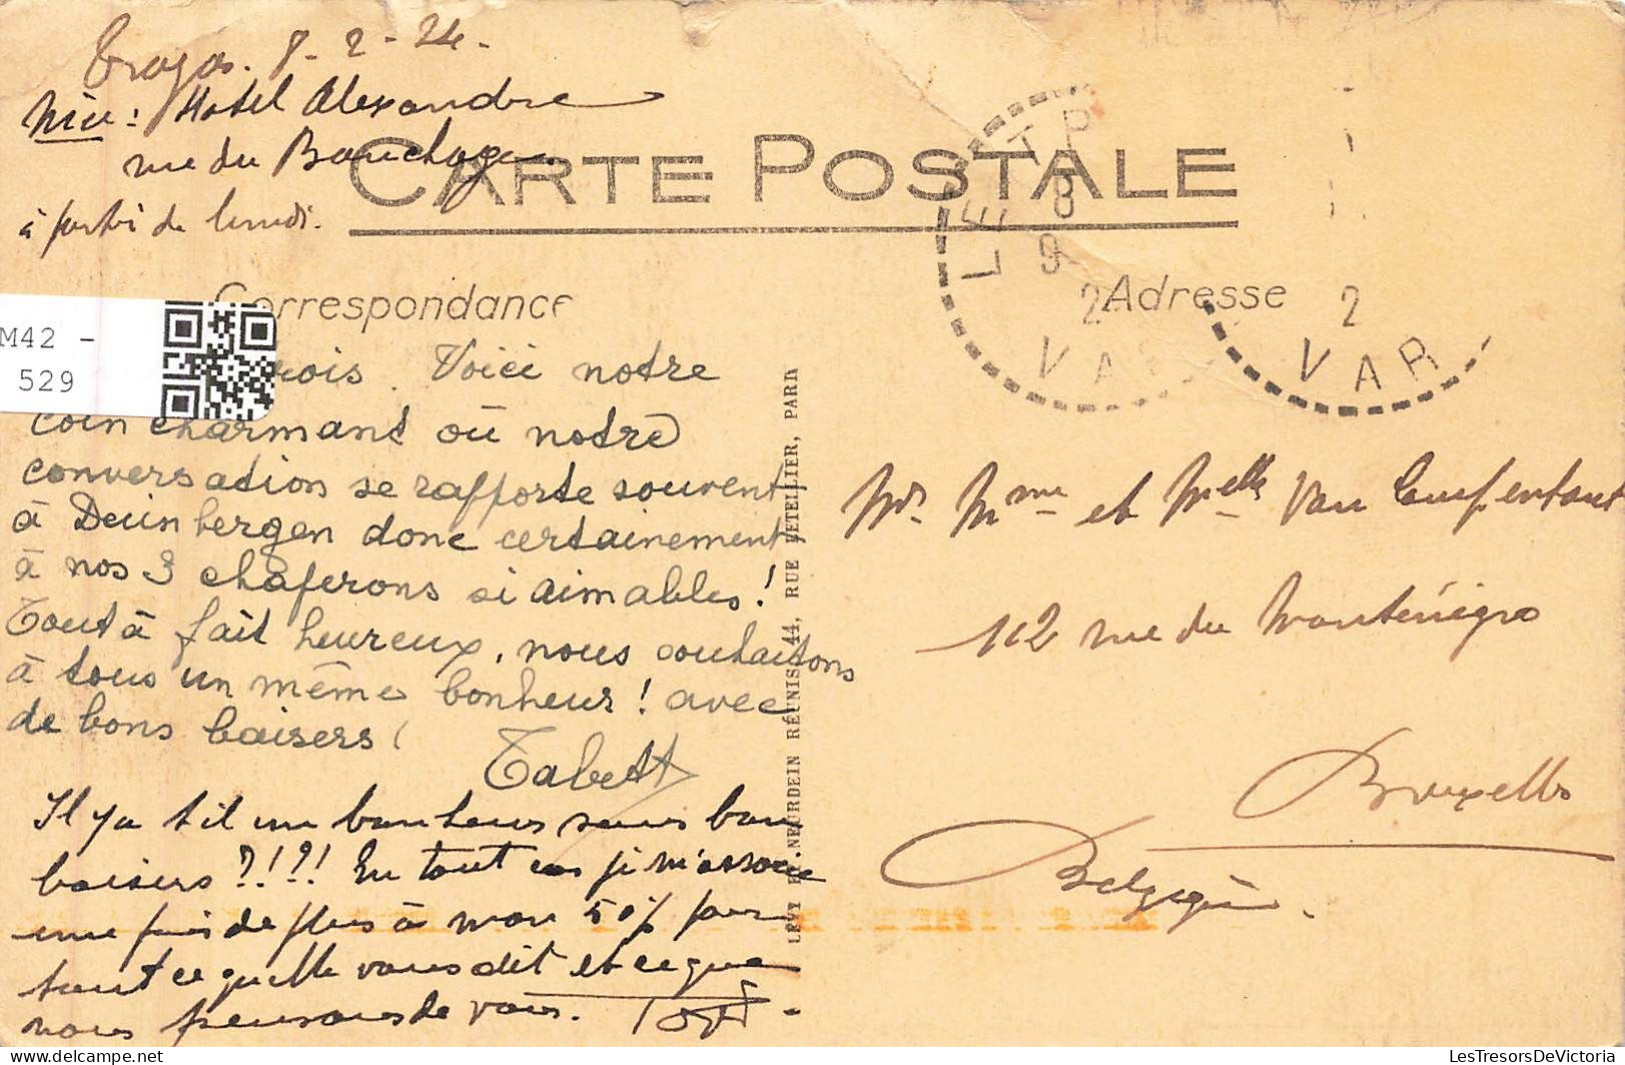 8-2-24.
Nice: Hotel Alexandre
rue du
à partir de lundi.
CARTE POSTALE
Correspondance
Adresse
M42 -
529
Voici notre
coin charmant où notre
conversation se rapporte souvent
à Deurnbergen donc certainement
à nos 3 chaperons si aimables!
Tout à fait heureux, nous souhaitons
à tous un même bonheur! avec
de bons baisers!
Tabett
Il y a t il un bonheur sans bon
baisers?!?! En tout cas je m'associe
une fois de plus à mon 50% pour
tout ce qu'elle vous dit et ce que
nous pensons de vous.
LEVY ET NEURDEIN RÉUNIS, 44, RUE LETELLIER, PARIS
LE
VAR
2
VAR
Mr. Mme et Melle Van
112 rue du Monténégro
Bruxelles
Belgique.
LesTresorsDeVictoria